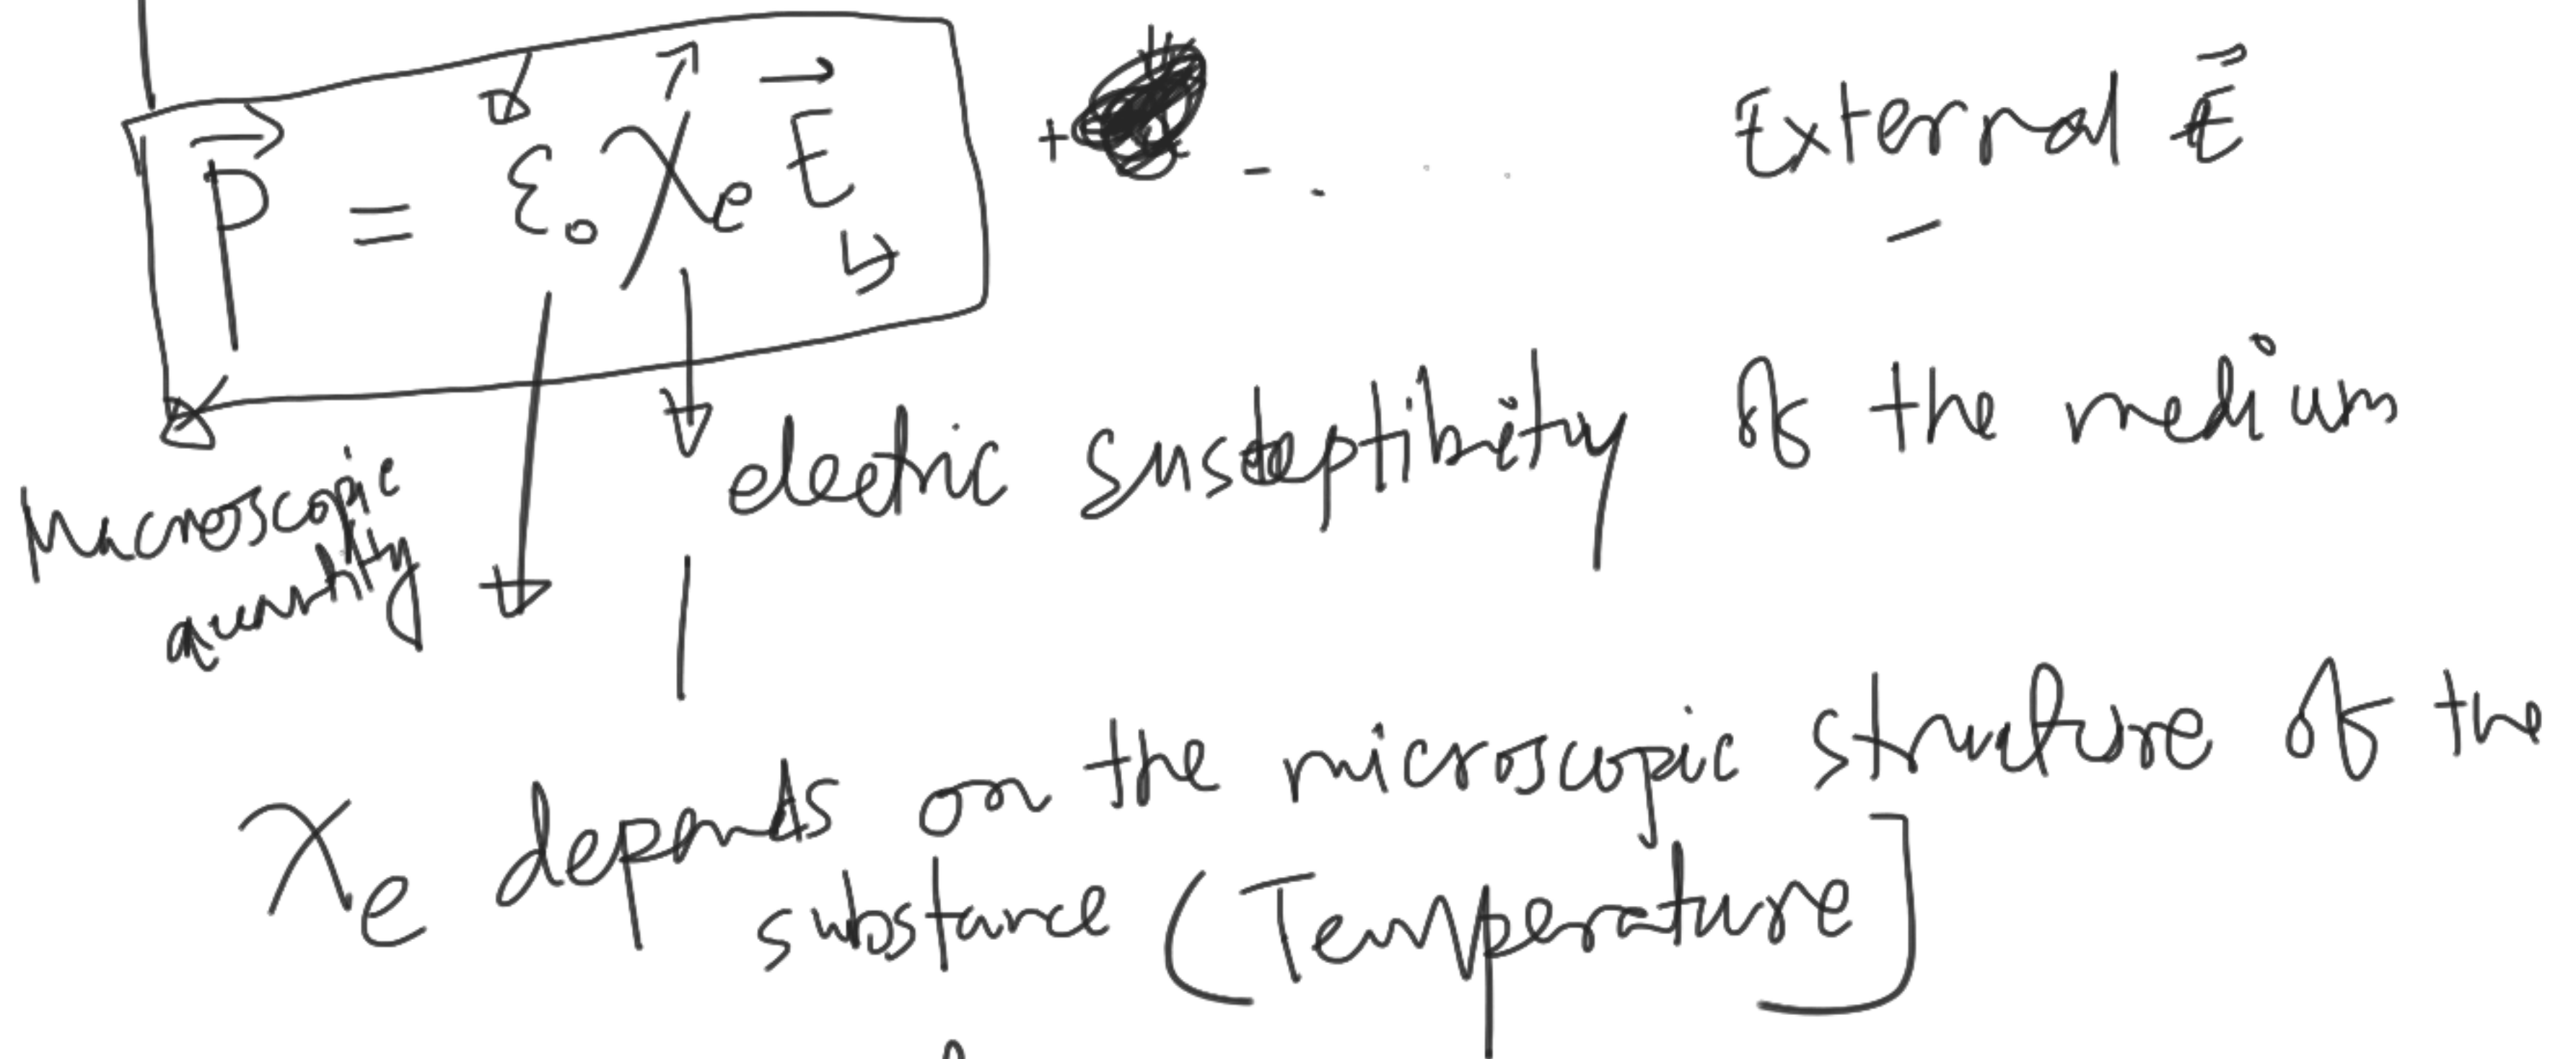 P⃗ = ε₀ χₑ E⃗
External E⃗
Macroscopic
quantity
electric susceptibility of the medium
χₑ depends on the microscopic structure of the
substance (Temperature]